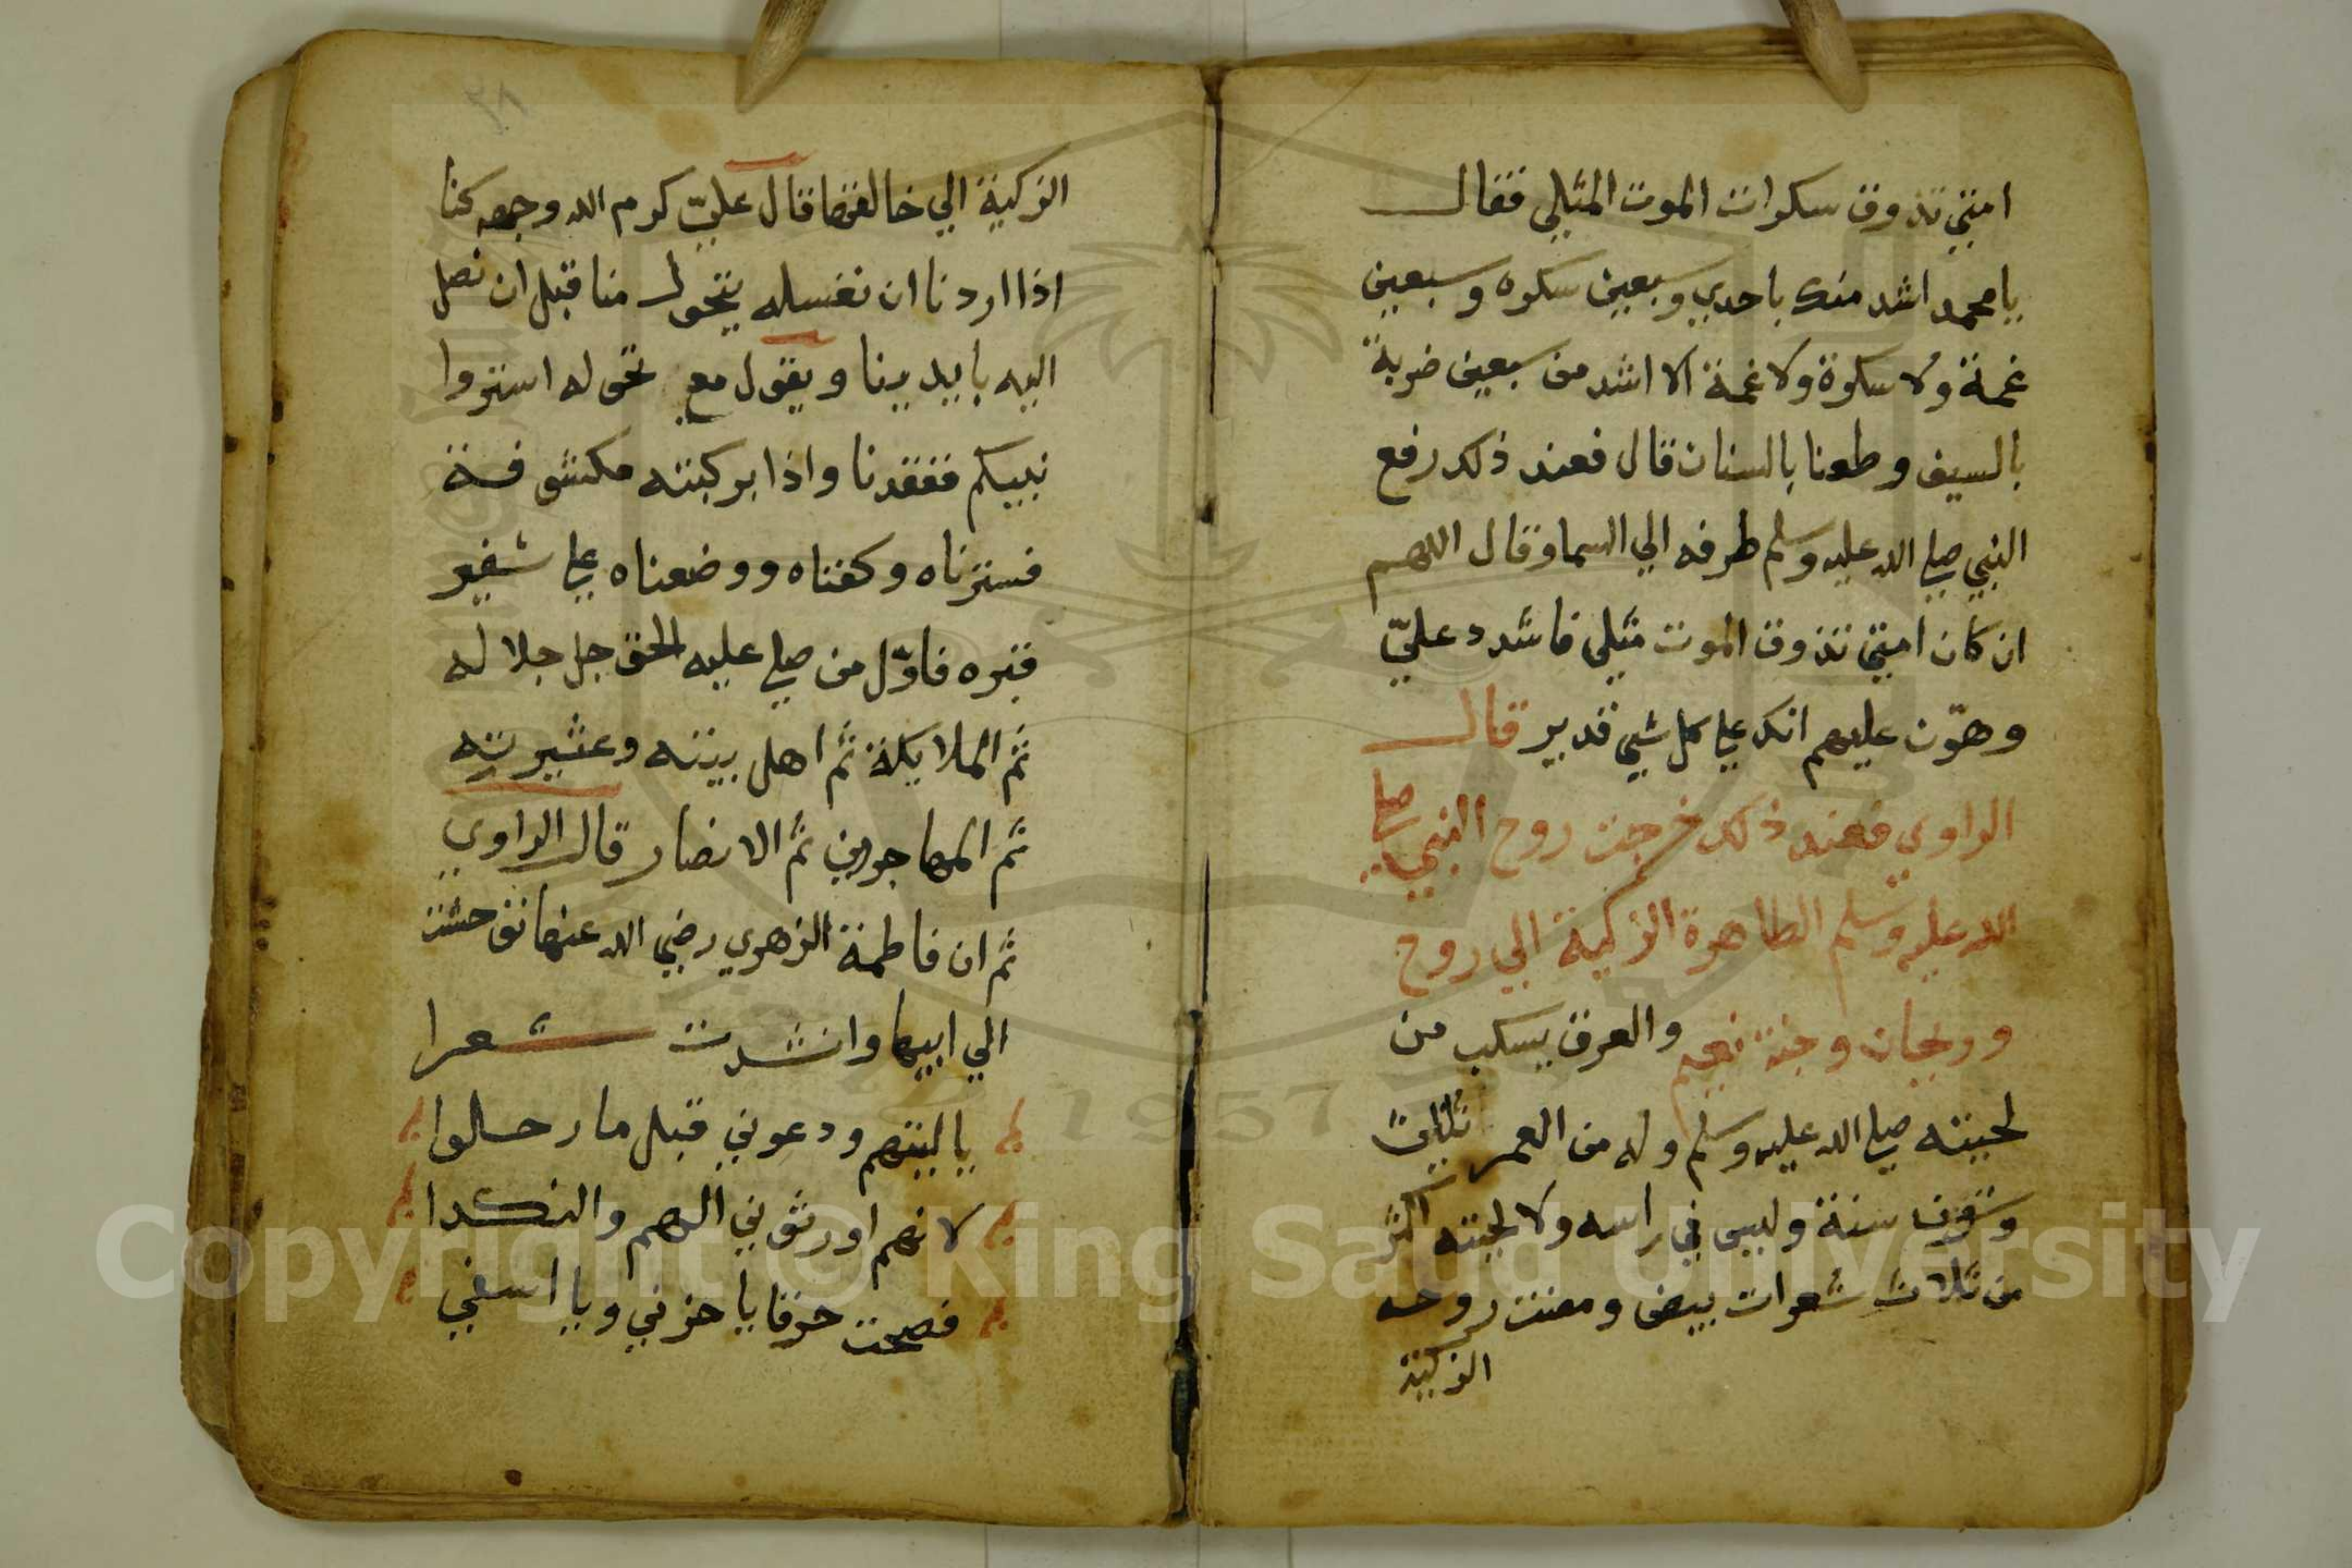 امتي تذوق سكرات الموت المثلي فقال
يا محمد اشد منك باحدي وسبعين سكره وسبعين
غمة ولا سكرة ولا غمة الا اشد من سبعين ضربة
بالسيف وطعنا بالسنان قال فعند ذلك رفع
النبي صلي الله عليه وسلم طرفه الي السما وقال اللهم
ان كان امتي تذوق الموت مثلي فاشدد عليّ
وهوّن عليهم انك علي كل شي قدير قال
الراوي فعند ذلك خرجت روح النبي صلي
الله عليه وسلم الطاهرة الزكية الي روح
وريحان وجنة نعيم والعرق يسكب من
لحيته صلي الله عليه وسلم وله من العمر ثلاثة
وستون سنة وليس في راسه ولا لحيته اكثر
من ثلاث شعرات بيض ومضت روحه
الزكية
٢٨
الزكية الي خالقها قال عليّ كرم الله وجهه كنا
اذا اردنا ان نغسله يتحول منا قبل ان نصل
اليه بايدينا ويقول مع تحوله استروا
نبيكم ففقدنا واذا بركبته مكشوفة
فسترناه وكفناه ووضعناه علي شفير
قبره فاوّل من صلي عليه الحق جل جلاله
ثم الملايكة ثم اهل بيته وعشيرته
ثم المهاجرين ثم الانصار قال الراوي
ثم ان فاطمة الزهري رضي الله عنها توحشت
الي ابيها وانشدت شعرا
ياليتهم ودعوني قبل ما رحلوا
لانهم اورثوني الهم والنكدا
فصحت حزقا يا حزني ويا اسفي
Copyright © King Saud University
1957